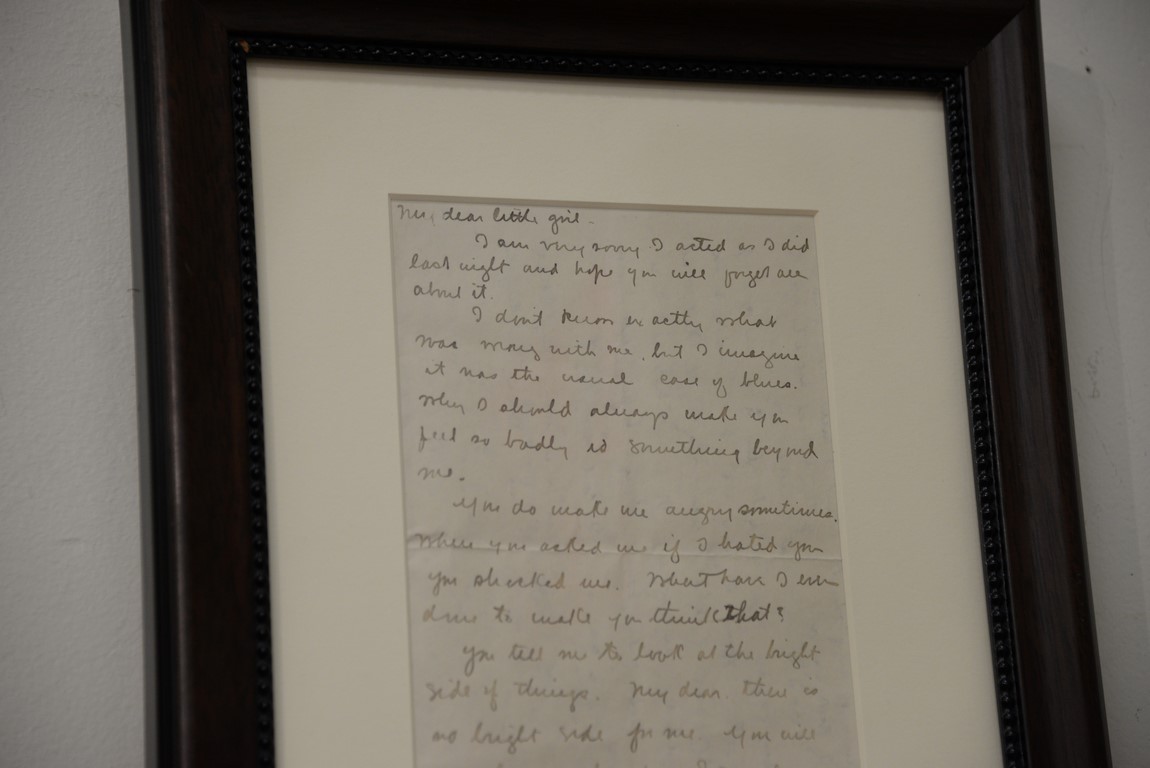 My dear little girl -
I am very sorry I acted as I did
last night and hope you will forget all
about it.
I don't know exactly what
was wrong with me, but I imagine
it was the usual case of blues.
Why I should always make you
feel so badly is something beyond
me.
You do make me angry sometimes.
When you asked me if I hated you
you shocked me. What have I ever
done to make you think that?
You tell me to look at the bright
side of things. My dear there is
no bright side for me. You will